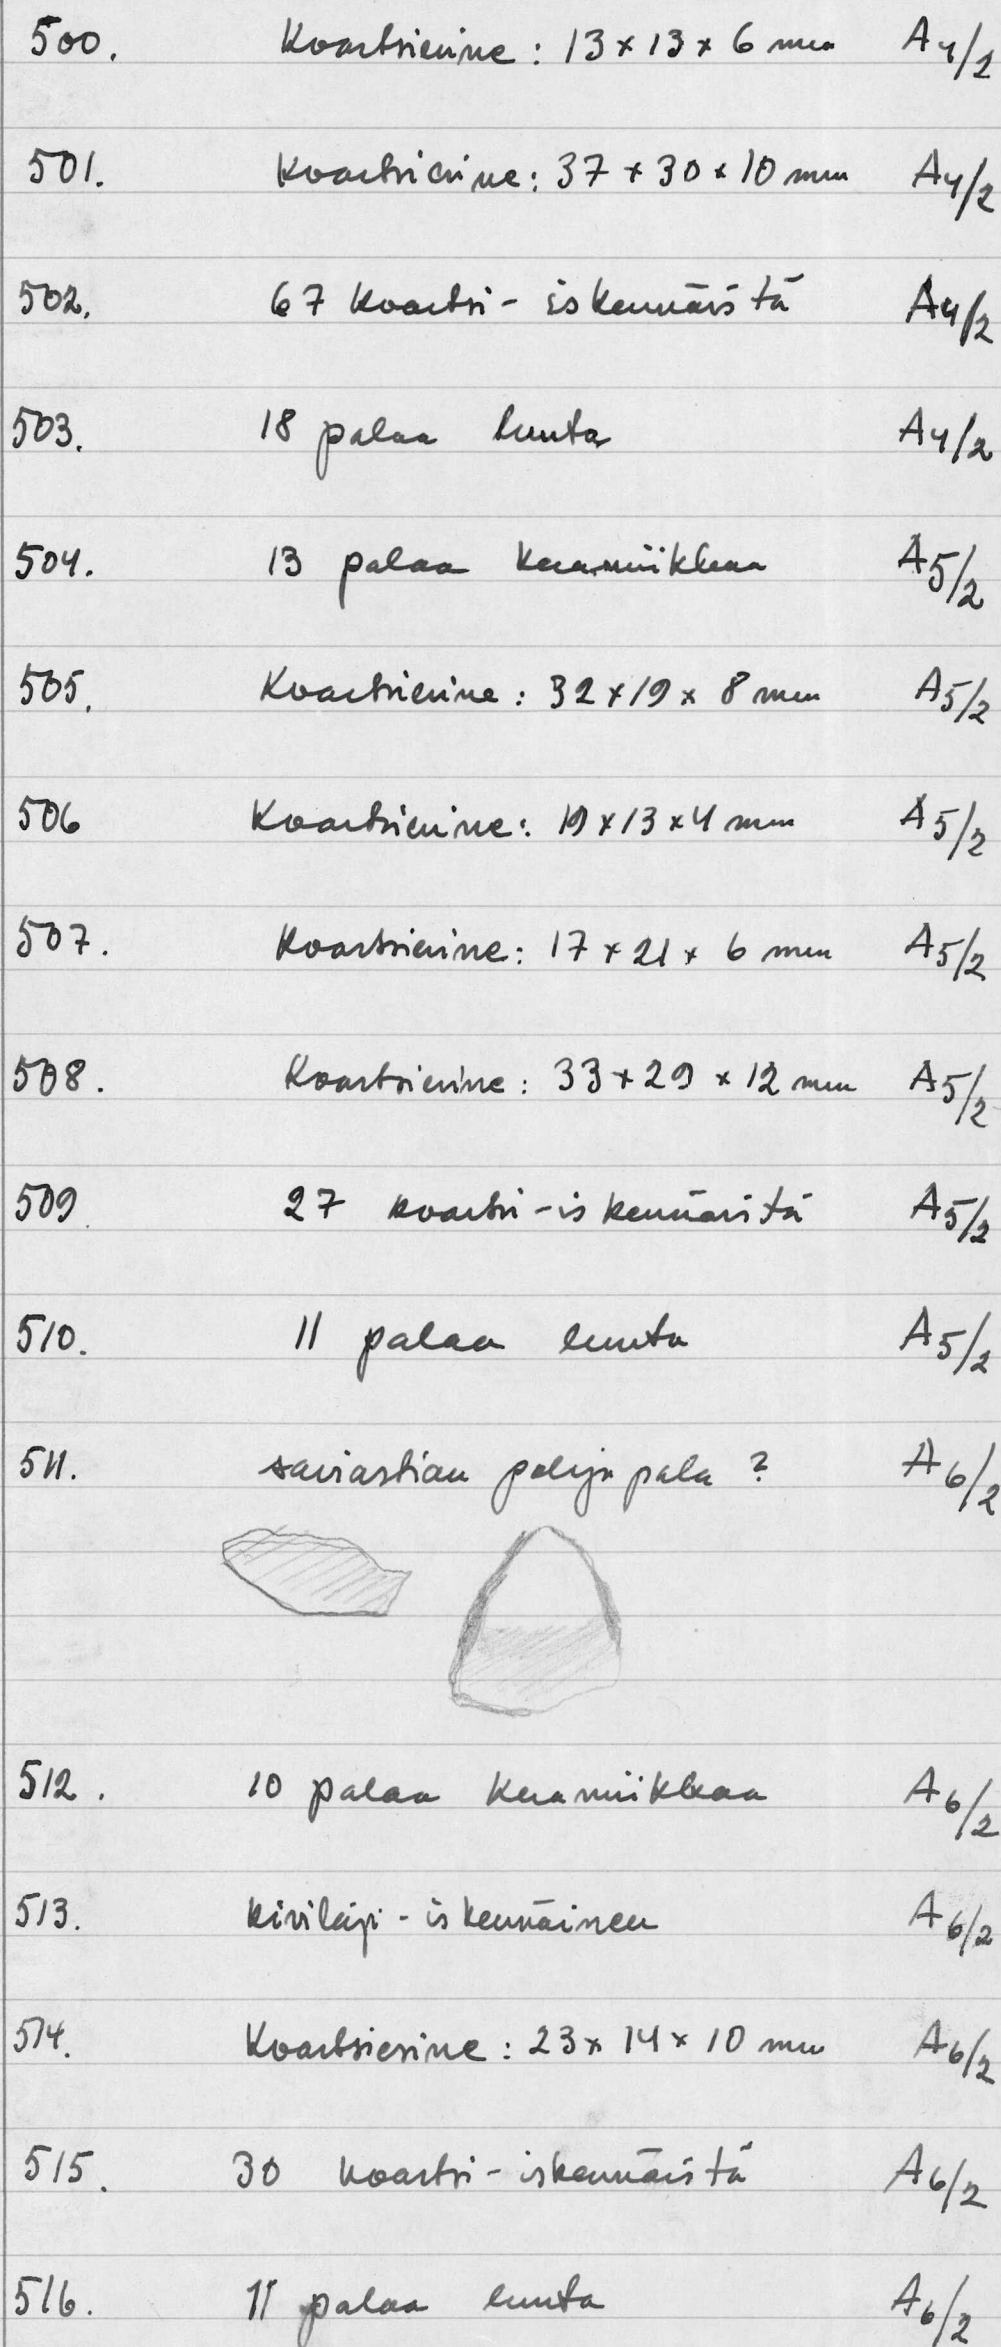 500. Kvartsiesine : 13 x 13 x 6 mm A4/2
501. Kvartsiesine : 37 x 30 x 10 mm A4/2
502. 67 kvartsi - iskennäistä A4/2
503. 18 palaa luuta A4/2
504. 13 palaa keramiikkaa A5/2
505. Kvartsiesine : 32 x 19 x 8 mm A5/2
506 Kvartsiesine : 19 x 13 x 4 mm A5/2
507. Kvartsiesine : 17 x 21 x 6 mm A5/2
508. Kvartsiesine : 33 x 29 x 12 mm A5/2
509. 27 kvartsi - iskennäistä A5/2
510. 11 palaa luuta A5/2
511. saviastian pohjapala ? A6/2
512. 10 palaa keramiikkaa A6/2
513. kivilaji - iskennäinen A6/2
514. Kvartsiesine : 23 x 14 x 10 mm A6/2
515. 30 kvartsi - iskennäistä A6/2
516. 11 palaa luuta A6/2